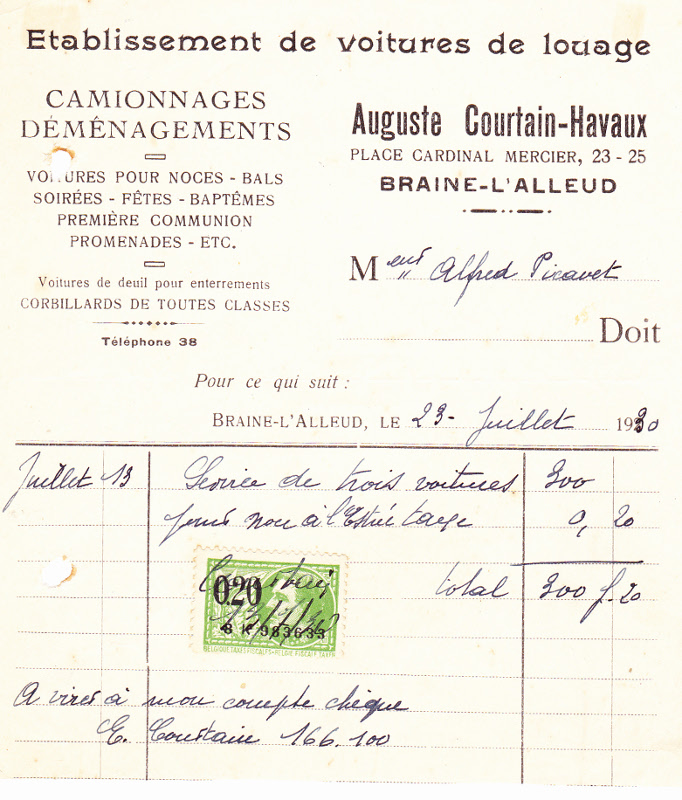 Etablissement de voitures de louage
CAMIONNAGES
DÉMÉNAGEMENTS
VOITURES POUR NOCES - BALS
SOIRÉES - FÊTES - BAPTÊMES
PREMIÈRE COMMUNION
PROMENADES - ETC.
Voitures de deuil pour enterrements
CORBILLARDS DE TOUTES CLASSES
Téléphone 38
Auguste Courtain-Havaux
PLACE CARDINAL MERCIER, 23 - 25
BRAINE-L'ALLEUD
Meur Alfred Picavet
Doit
Pour ce qui suit :
BRAINE-L'ALLEUD, LE 23 - Juillet 1930
Juillet 13 Service de trois voitures 300
à taxe 0,20
total 300 f. 20
Courtain
0.20
13/7/30
8 K 983633
BELGIQUE TAXES FISCALES - BELGIE FISCALE TAXEN
A virer à mon compte chèque
E. Courtain 166.100